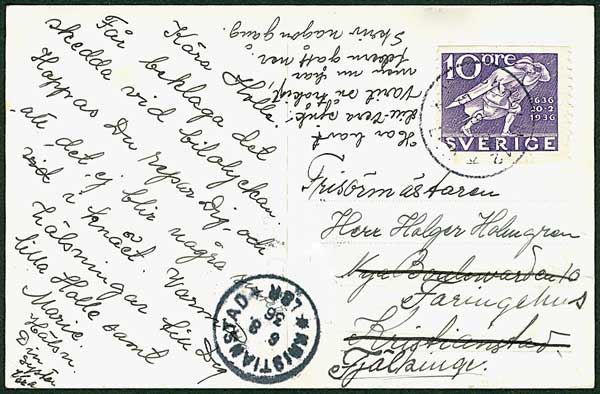 Kära Holle.
Får beklaga det
skedda vid bilolyckan.
Hoppas Du repar Dig, och
att det ej blir några
vid i knäet. Varma
hälsningar till Dig
lilla Holle samt
Marie.
Hälsn.
Din
syster
Har haft
Liv-Vera sjuk,
Varit en orolig,
men nu har
febern gått ner.
Skriv någon gång.
10 ÖRE
1636
20-2
1936
SVERIGE
Frisörmästaren
Herr Holger Holmgren
Nya Boulevarden 10
Faringehus
Kristianstad
Fjälkinge.
KRISTIANSTAD
LBR
6 8
36